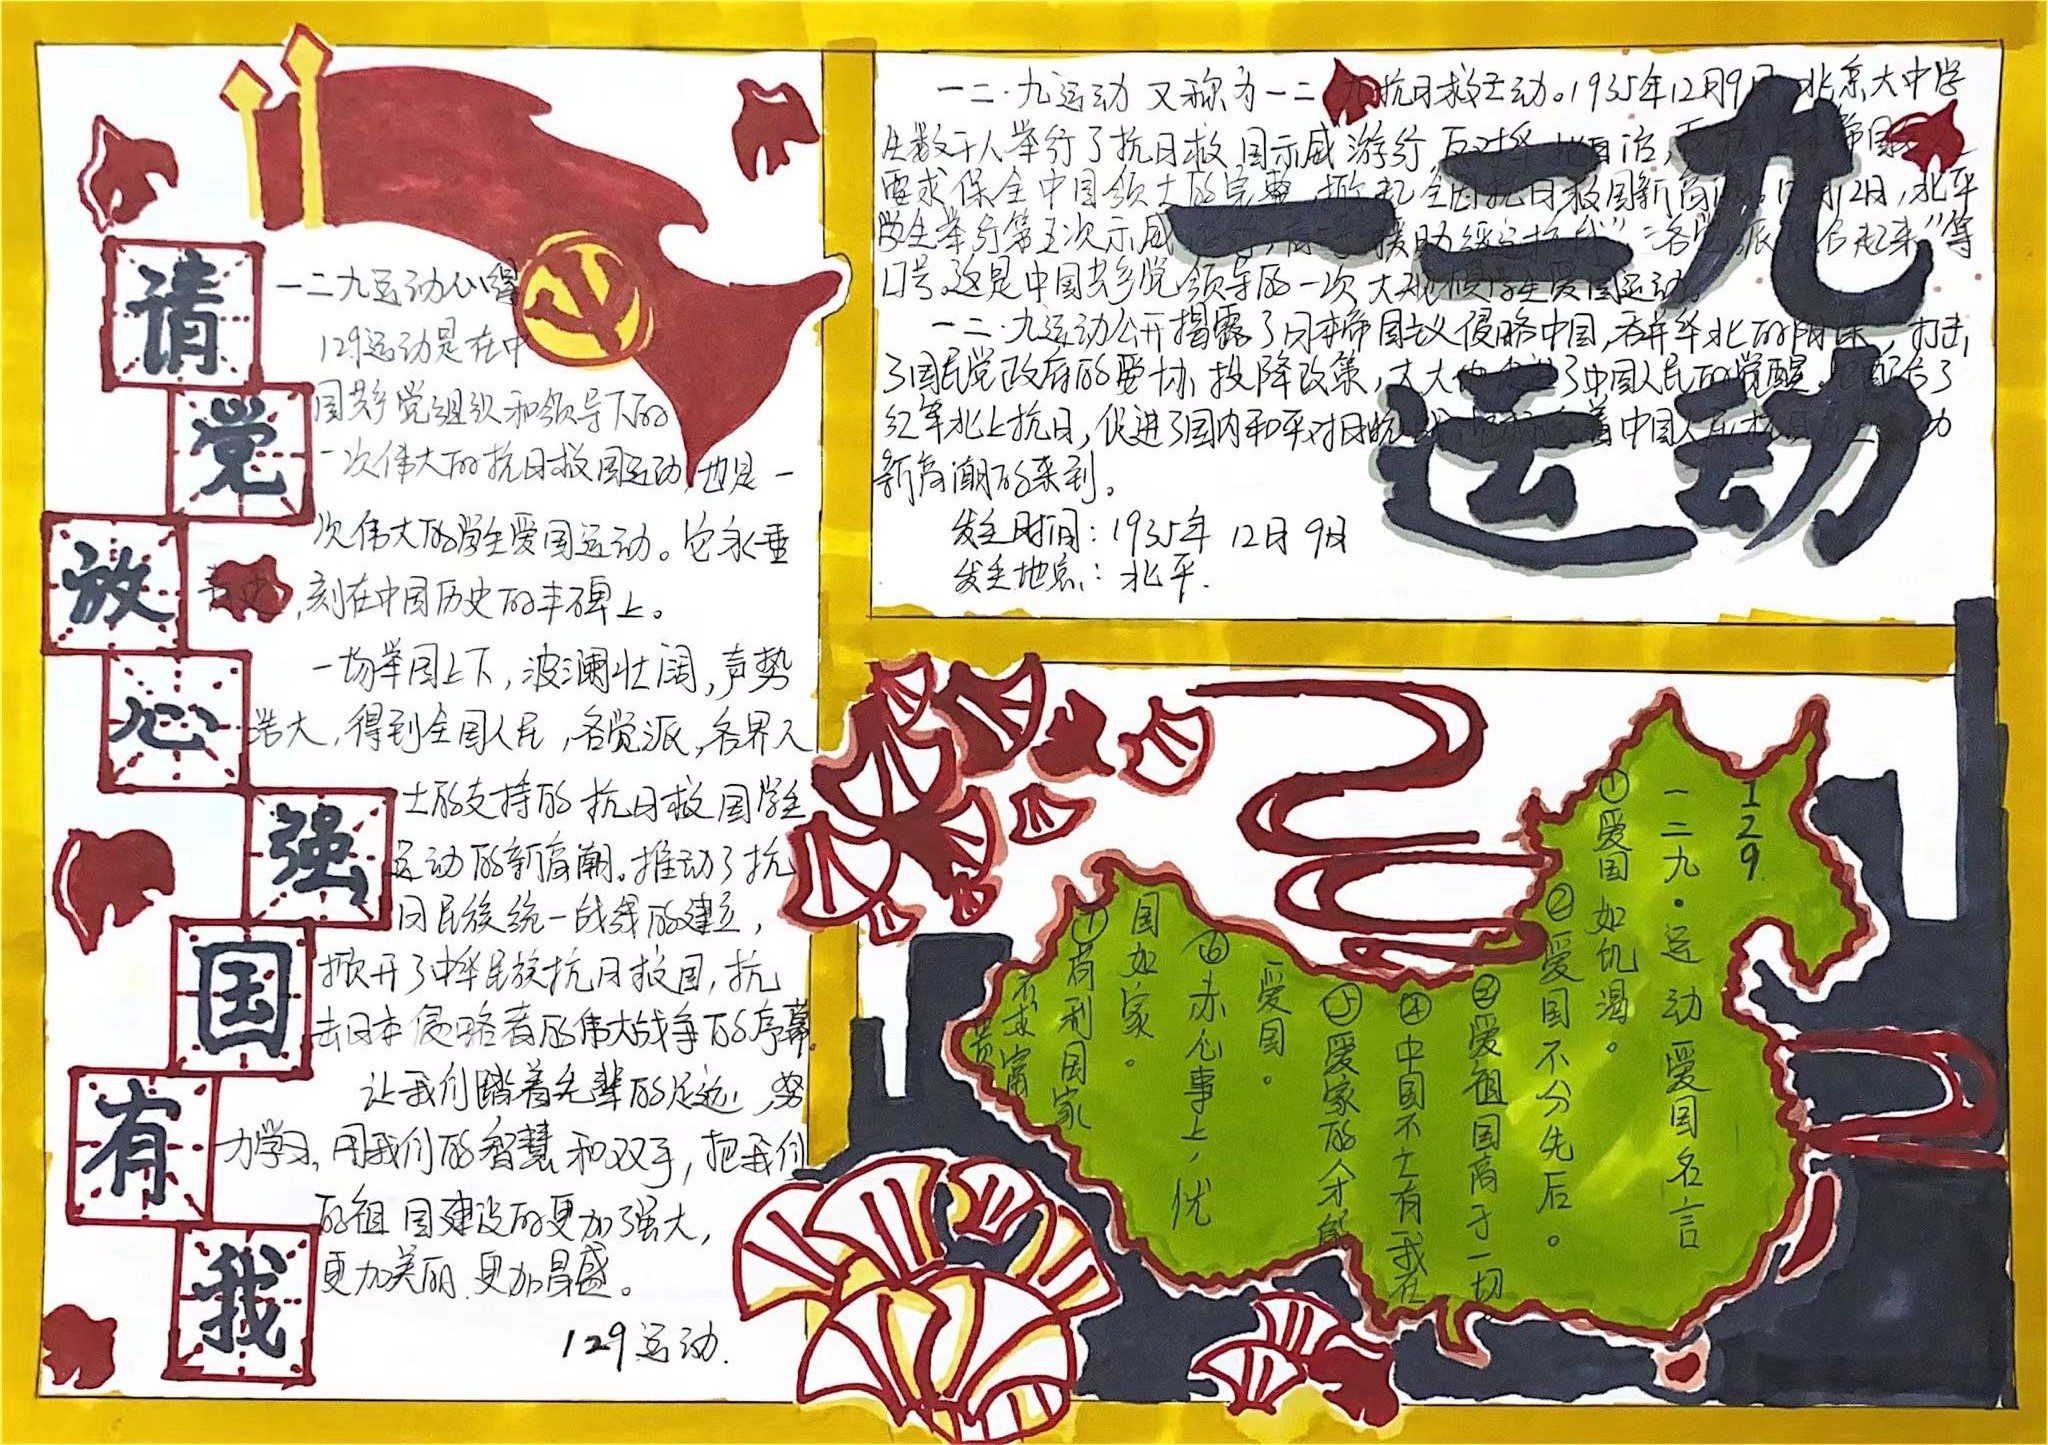 请
党
放
心
强
国
有
我
一二九运动心得
129运动是在中
国共产党组织和领导下的
一次伟大的抗日救国运动,也是一
次伟大的学生爱国运动。它永垂
,刻在中国历史的丰碑上。
一场举国上下,波澜壮阔,声势
浩大,得到全国人民,各党派,各界人
士的支持的抗日救国学生
运动的新高潮。推动了抗
日民族统一战线的建立,
掀开了中华民族抗日救国,抗
击日本侵略者的伟大战争的序幕.
让我们踏着先辈的足迹,努
力学习,用我们的智慧和双手,把我们
的祖国建设的更加了强大,
更加美丽.更加昌盛。
129运动.
一二九
运动
一二·九运动又称为一二 九抗日救亡动。1935年12月9日 北京大中学
生数千人举行了抗日救国示威游行 反对华北自治,
要求保全中国领土的完整,掀起全国抗日救国新高 12日,北平
学生举行第五次示威 援助绥远抗战""各党派 起来"等
口号.这是中国共产党领导的一次大规模学生爱国运动。
一二·九运动公开揭露了日本帝国主义侵略中国,吞并华北的阴谋,打击,
了国民党政府的妥协投降改策,大大地促进了中国人民的觉醒。 配合了
红军北上抗日,促进了国内和平对日抗 着中国人民抗日 动
新高潮的来到。
发生时间:1935年12月9日
发生地点:北平.
129
一二九·运动爱国名言
①爱国如饥渴。
②爱国不分先后。
③爱祖国高于一切
④中国不亡有我在
⑤爱家的人才能
爱国。
⑥赤心事上,忧
国如家。
⑦苟利国家
不求富
贵